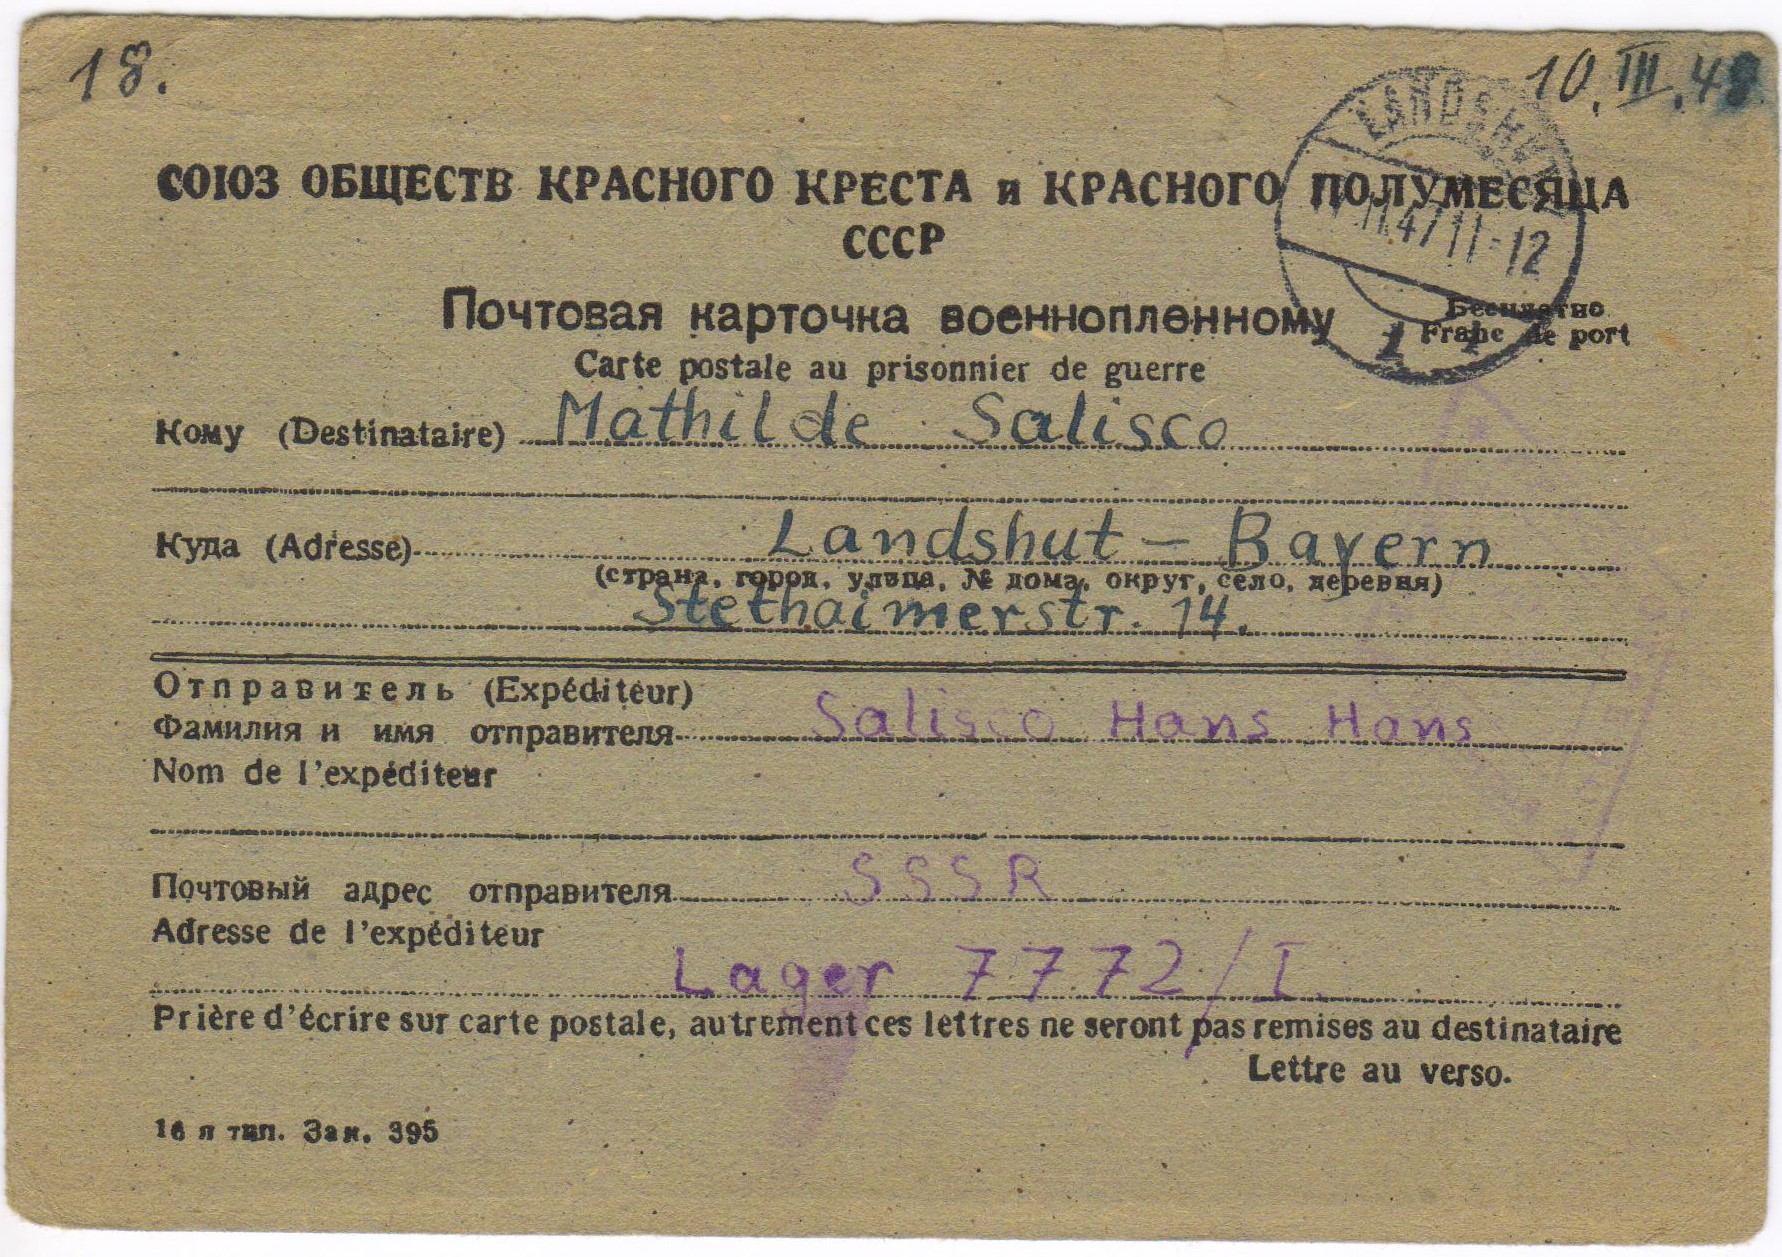 18.
10. III. 48
LANDSHUT
11.47 11-12
СОЮЗ ОБЩЕСТВ КРАСНОГО КРЕСТА и КРАСНОГО ПОЛУМЕСЯЦА
СССР
Почтовая карточка военнопленному
Бесплатно
Franc de port
Carte postale au prisonnier de guerre
Кому (Destinataire) Mathilde Salisco
Куда (Adresse) Landshut – Bayern
(страна, город, улица, № дома, округ, село, деревня)
Stethaimerstr. 14.
Отправитель (Expéditeur)
Фамилия и имя отправителя Salisco Hans Hans
Nom de l'expéditeur
Почтовый адрес отправителя SSSR
Adresse de l'expéditeur
Lager 7772/I.
Prière d'écrire sur carte postale, autrement ces lettres ne seront pas remises au destinataire
Lettre au verso.
16 я тип. Зак. 395